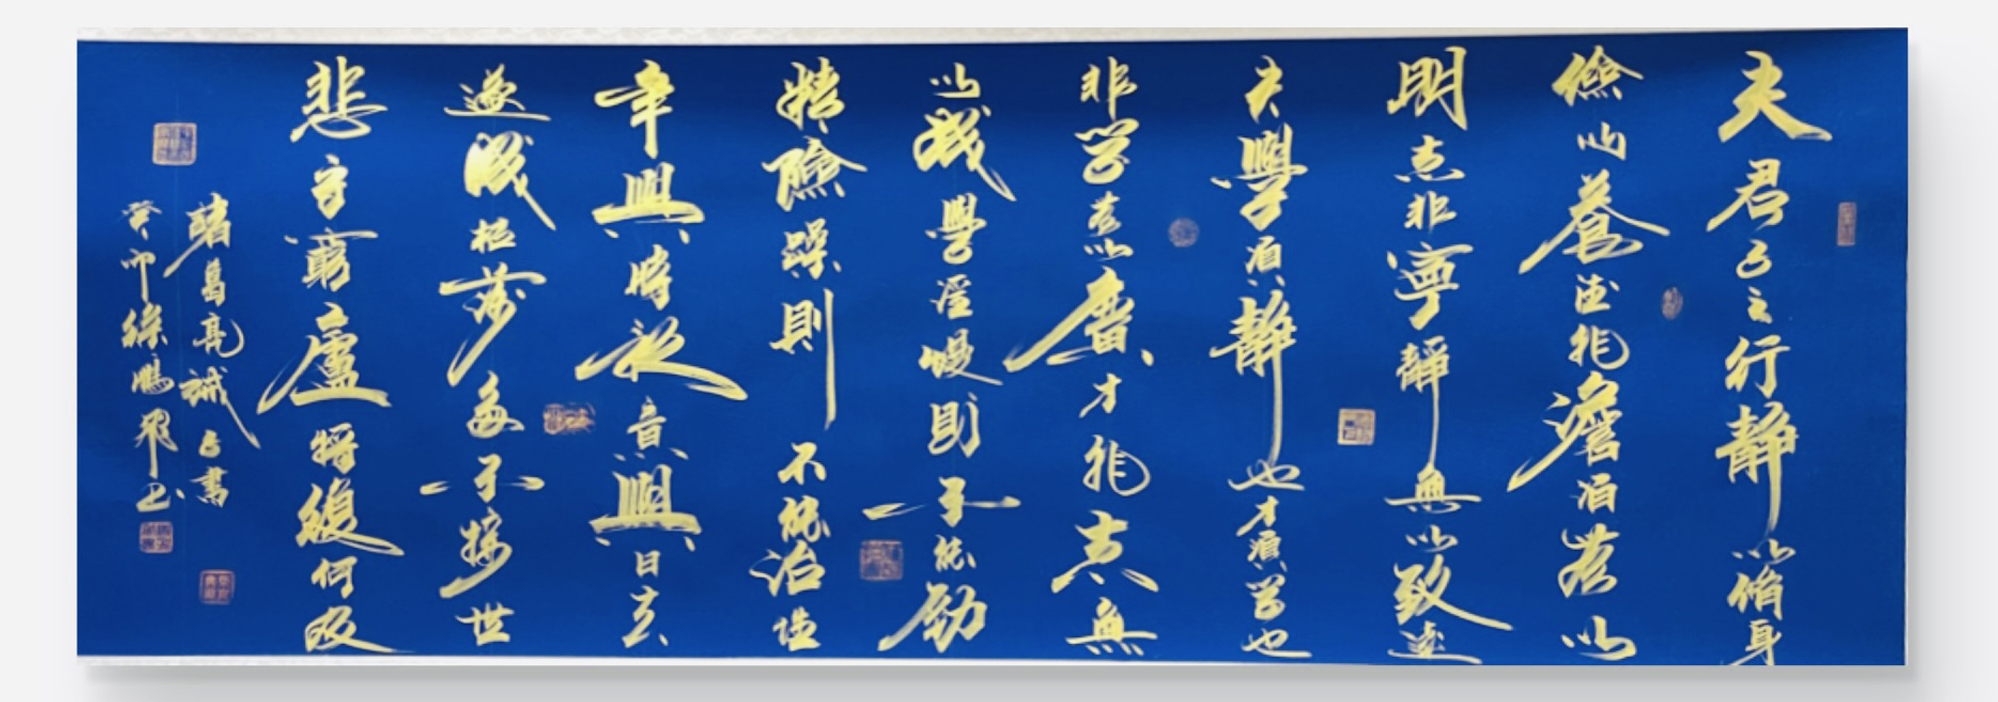 夫君子之行靜以脩身
儉以養德非澹泊無以
明志非寧靜無以致遠
夫學須靜也才須學也
非學無以廣才非志無
以成學淫慢則不能勵
精險躁則不能治性
年與時馳意與日去
遂成枯落多不接世
悲守窮廬將復何及
諸葛亮誡子書
癸卯徐鵬飛书